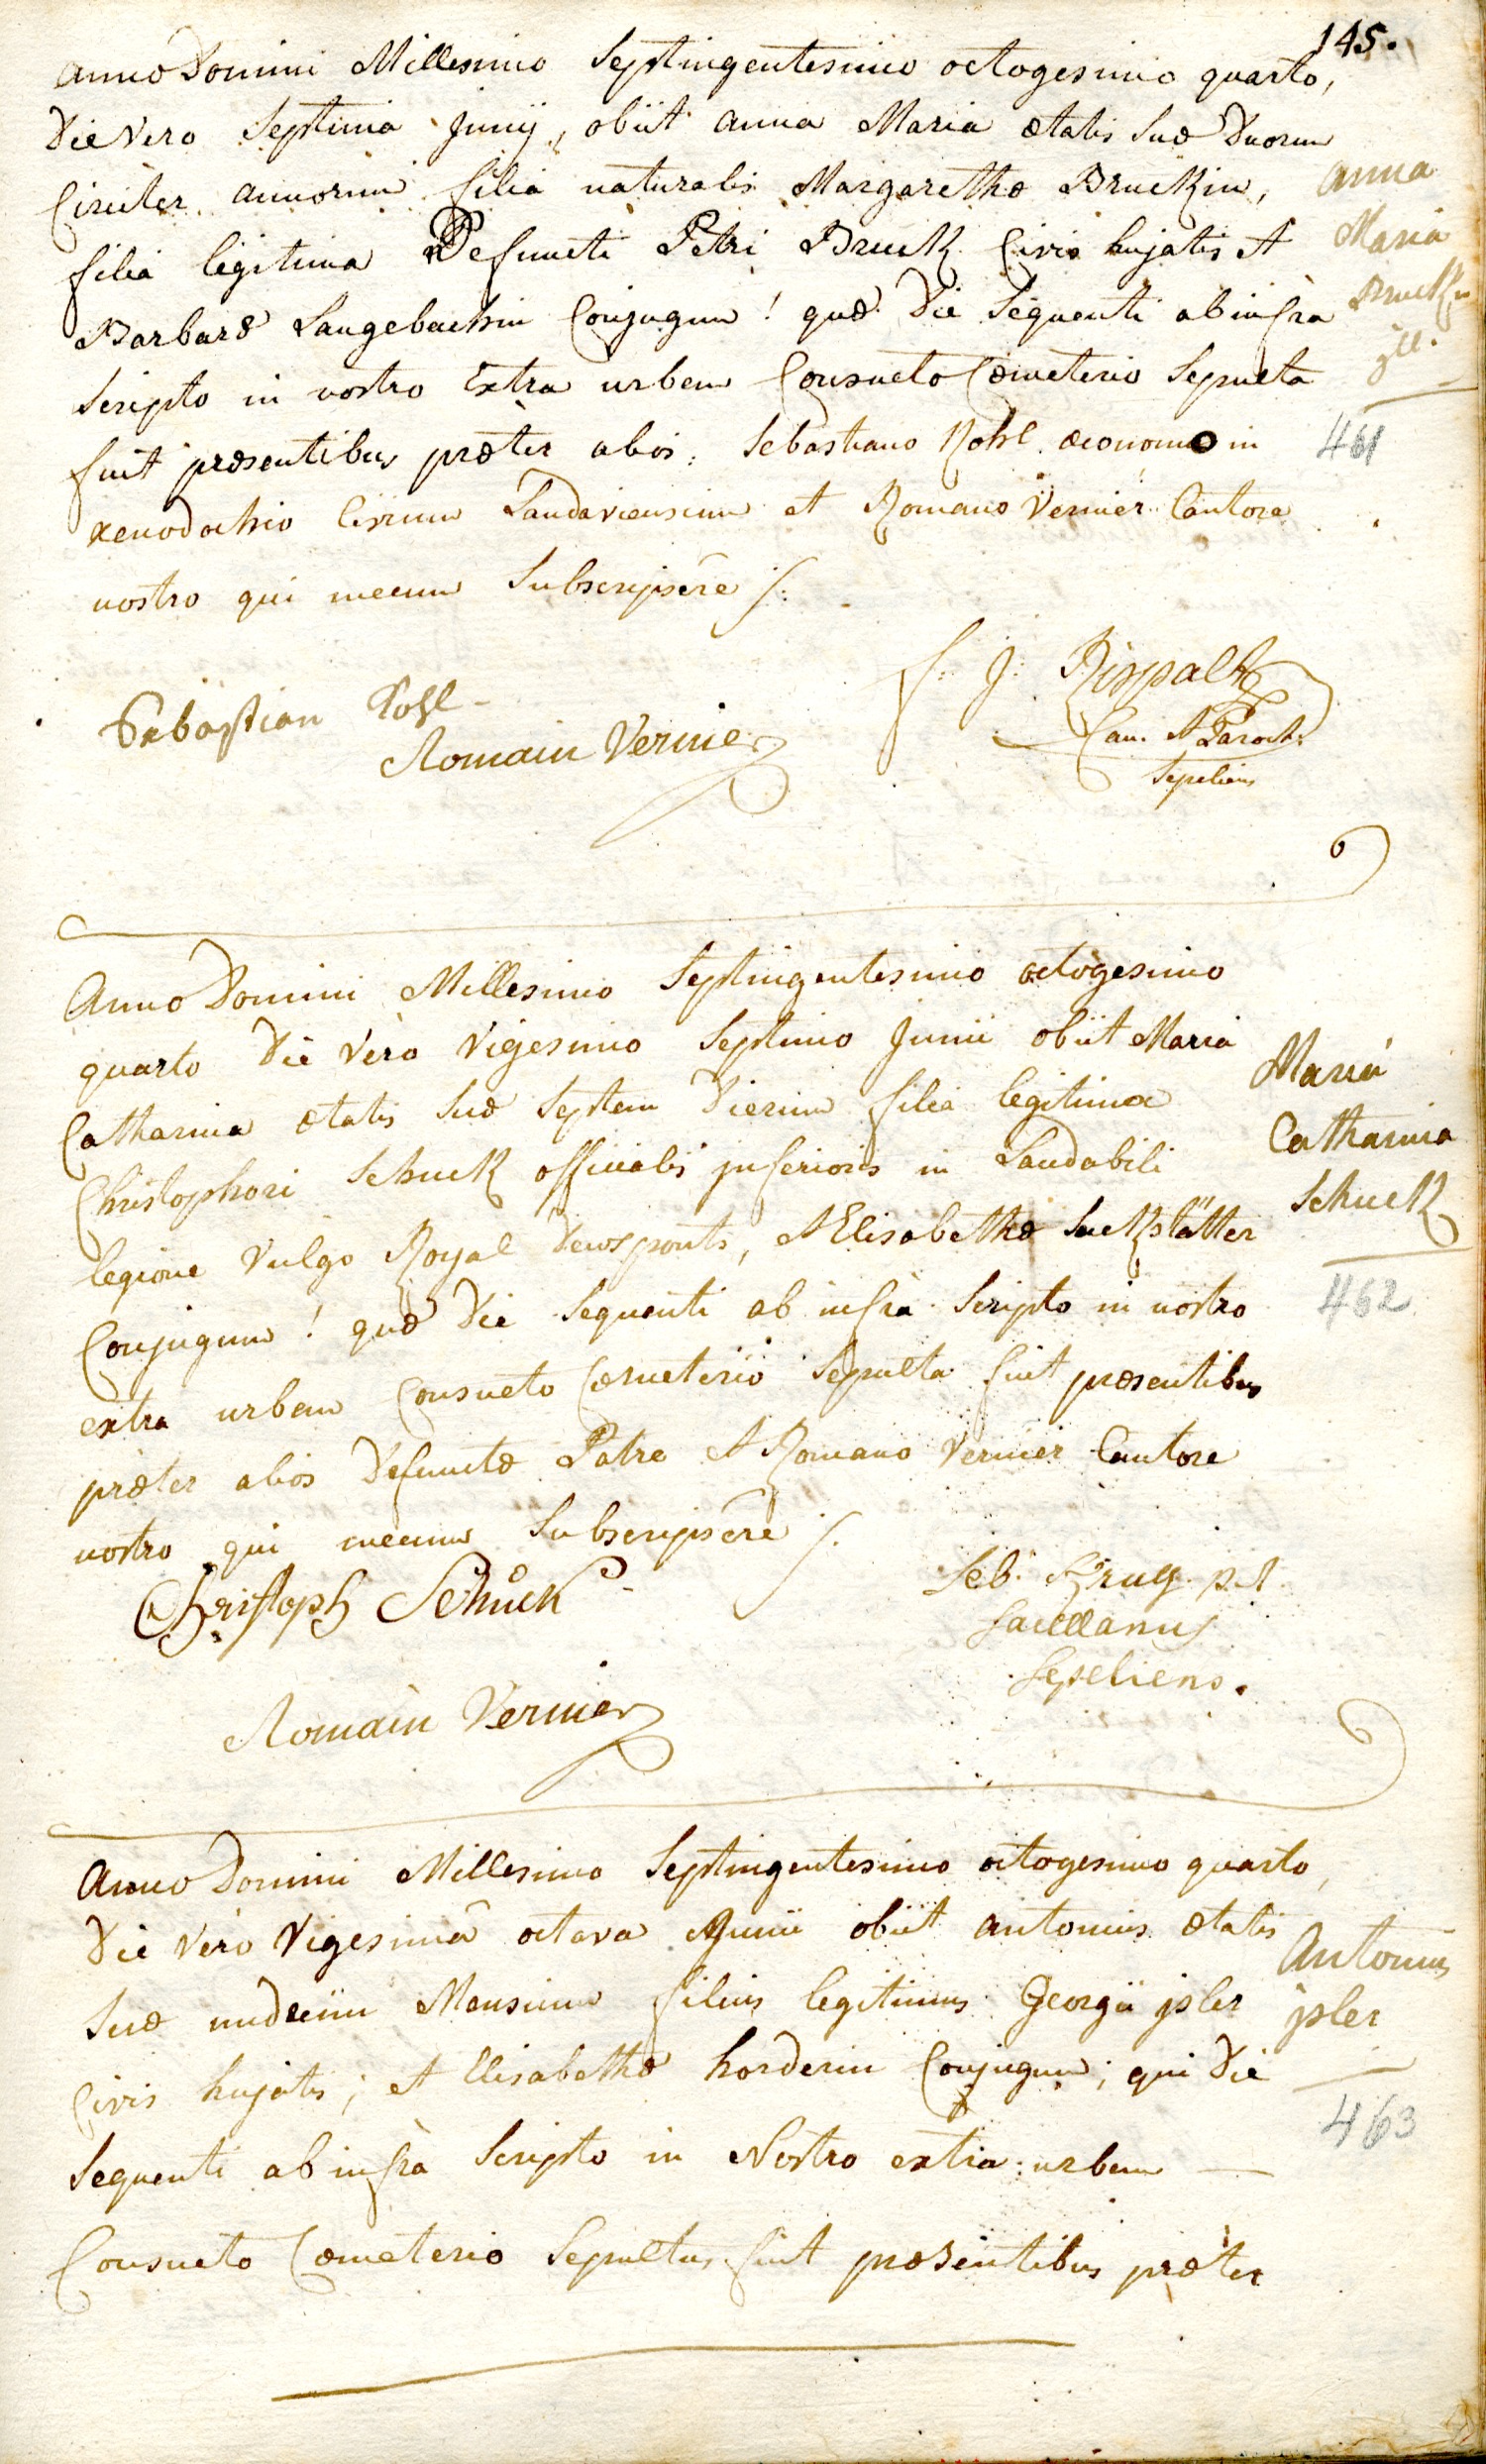 145.
Anno Domini Millesimo Septingentesimo octogesimo quarto,
Die Vero Septima Junij, obiit Anna Maria ætatis suæ Duorum
Circiter annorum filia naturalis Margarethæ Bruckin,
filia legitima Defuncti Petri Bruck Civis hujatis et
Barbaræ Langebachin Conjugum ! quæ Die Sequenti ab infra
Scripto in nostro Extra urbem Consueto Cœmeterio Sepulta
fuit præsentibus præter alios: Sebastiano Kohl œconomo in
xenodochio Civium Landaviensium et Romano Vernier Cantore
nostro qui mecum Subscripsere /:
Anna
Maria
Bruckin
ill.
461
Sebastian Kohl
Romain Vernier
f: J: Rispalt
Can. et Paroch:
Sepeliens
Anno Domini Millesimo Septingentesimo octogesimo
quarto Die Vero Vigesimo Septimo Junii obiit Maria
Catharina ætatis Suæ Septem Dierum filia legitima
Christophori Schuck officialis inferioris in Laudabili
legione Vulgo Royal Deuxponts, et Elisabethæ Suckstätter
Conjugum ! quæ Die Sequenti ab infra Scripto in nostro
extra urbem Consueto Cœmeterio Sepulta fuit præsentibus
præter alios Defunctæ Patre et Romano Vernier Cantore
nostro qui mecum Subscripsere /.
Maria
Catharina
Schuck
462
Christoph Schuck
Romain Vernier
Seb. Krug p.t.
Sacellanus
Sepeliens.
Anno Domini Millesimo Septingentesimo octogesimo quarto,
Die Vero Vigesima octava Junii obiit Antonius ætatis
Suæ undecim Mensium filius legitimus Georgii jsler
Civis hujatis; et Elisabethæ horderin Conjugum; qui Die
Sequenti ab infra Scripto in Nostro extra urbem —
Consueto Cœmeterio Sepultus fuit præsentibus præter
Antonius
jsler
463